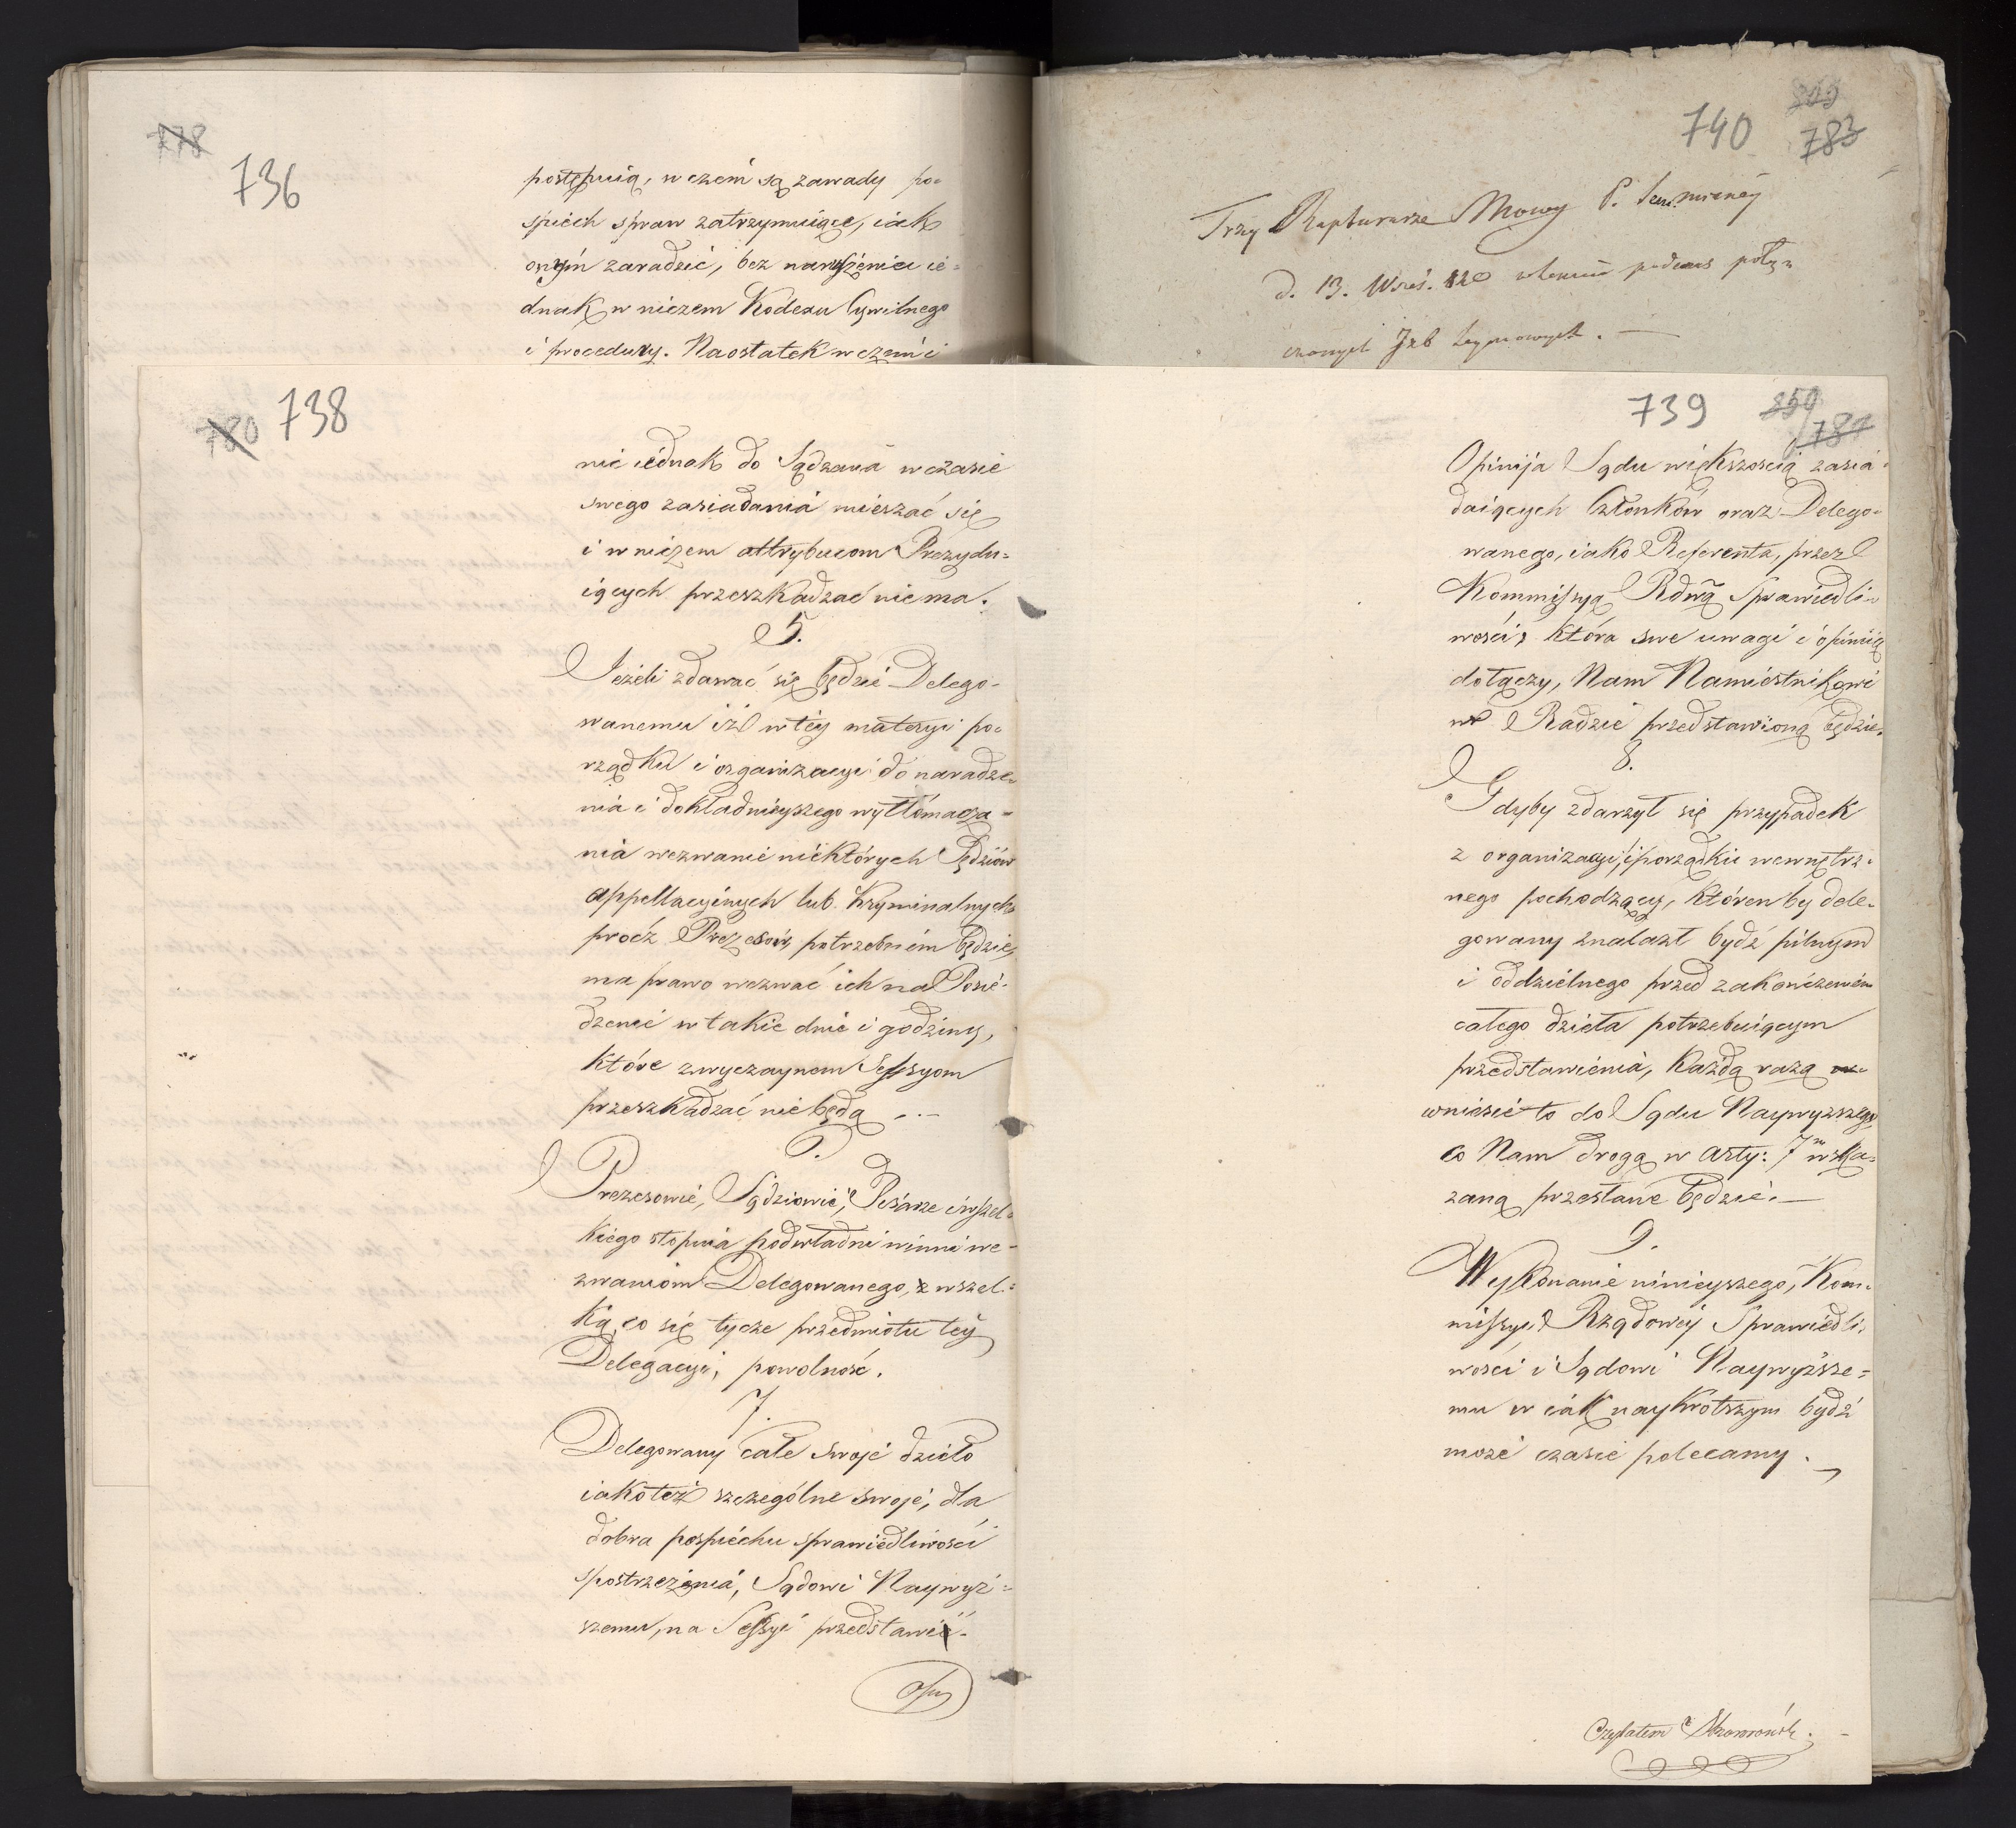 778
736
postępuią, w czem są zawady po=
spiech spraw zatrzymuiące, iak
onym zaradzić, bez naruszenia ie=
dnak w niczem Kodexu Cywilnego
i procedury. Naostatek w czem i
740
783
Trzy Raptularze Mowy
d. 13. Wrześ. 820 podczas połą=
czonych Izb Seymowych. —
780
738
nie iednak do Sądzenia w czasie
swego zasiadania mieszać się
i w niczem attrybucom Prezydu=
iących przeszkadzać nie ma.
5.
Jeżeli zdawać się będzie Delego=
wanemu iż w téy materyi po=
rządku i organizacyi do naradze=
nia i dokładnieyszego wytłómacza=
nia wezwanie niektórych Sędziów
appellacyinych lub Kryminalnych
prócz Prezesów, potrzebném będzie,
ma prawo wezwać ich na Posie=
dzenie w takie dnie i godziny,
które zwyczaynem Sessyom
przeszkadzać nie będą . . —
6.
Prezesowie, Sędziowie, Pisarze i wszel=
kiego stopnia podwładni winni we=
zwaniom Delegowanego, z wszel=
ką, co się tycze przedmiotu téy
Delegacyi, powolność.
7.
Delegowany całe swoje dzieło
iakoteż szczególne swoje, dla
dobra pospiechu sprawiedliwości
spostrzeżenia, Sądowi Naywyż=
szemu, na Sessyi przedstawi.
Opi
739
859
781
Opinija Sądu większością zasia=
daiących Członków oraz Delego=
wanego, iako Referenta, przez
Kommissyą Rdwą Sprawiedli=
wości, która swe uwagi i opiniią
dołączy, Nam Namiestnikowi
w Radzie przedstawioną będzie.
8.
Gdyby zdarzył się przypadek
z organizacyi, i porządku wewnętrz=
nego pochodzący, któren by dele=
gowany znalazł bydź pilnym
i oddzielnego przed zakończeniem
całego dzieła potrzebuiącym
przedstawienia, każdą razą
wniesie to do Sądu Naywyższego,
co Nam drogą w Arty: 7m wska=
zaną przesłane będzie. —
9.
Wykonanie ninieyszego, Kom=
missyi Rządowéy Sprawiedli=
wości i Sądowi Naywyższe=
mu w iak naykrótszym bydź
może czasie polecamy.
Czytałem